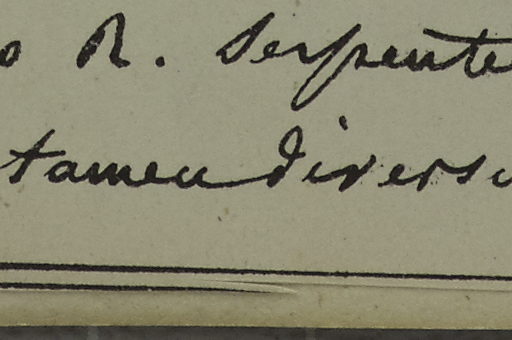 o R. Serpente
tamen divers